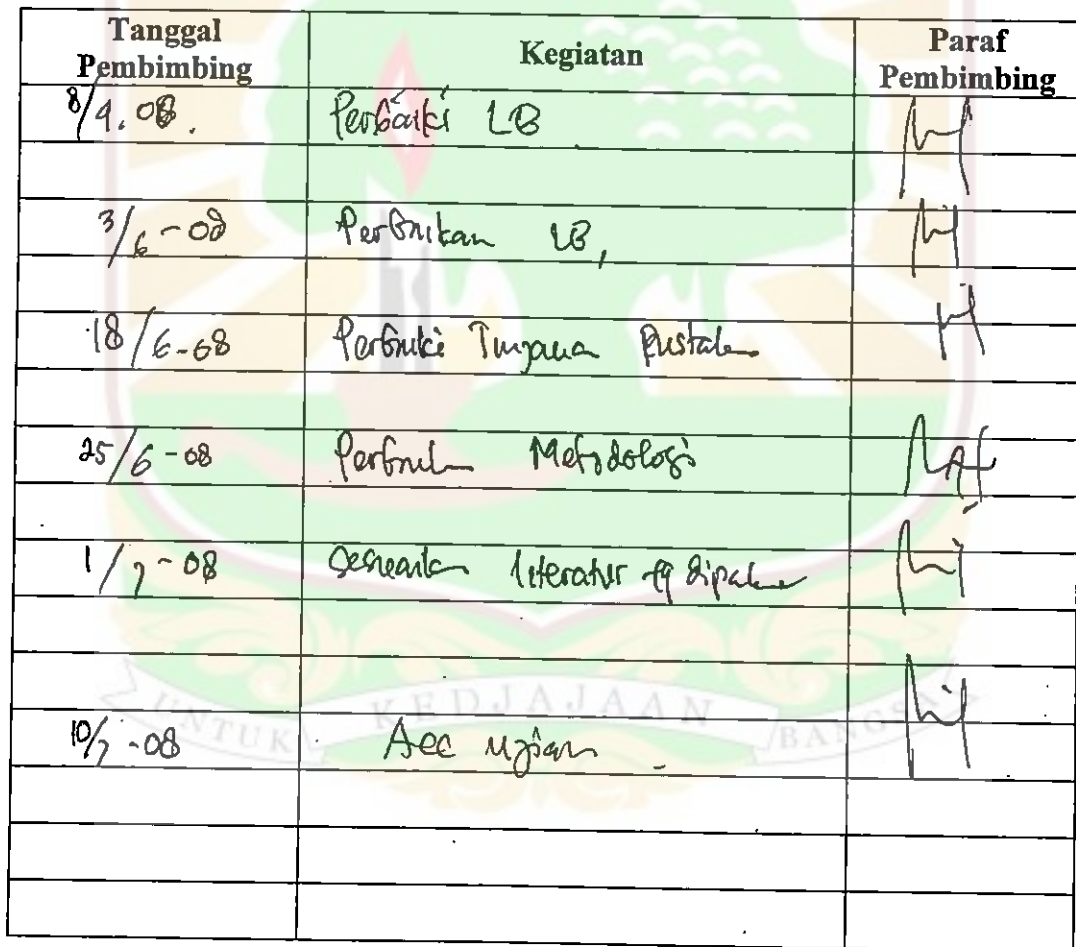 Tanggal Pembimbing Kegiatan Paraf Pembimbing
8/4.08. Perbaiki LB
3/6-08 Perbaikan LB,
18/6-08 Perbaiki Tinjauan Pustaka
25/6-08 Metodologi
1/7-08 Sesuaikan literatur yg dipakai
10/7-08 Acc ujian
UNTUK KEDJAJAAN BANGSA